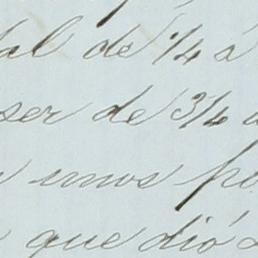 al de 1/4 á
ser de 3/4 a
unos
que dió